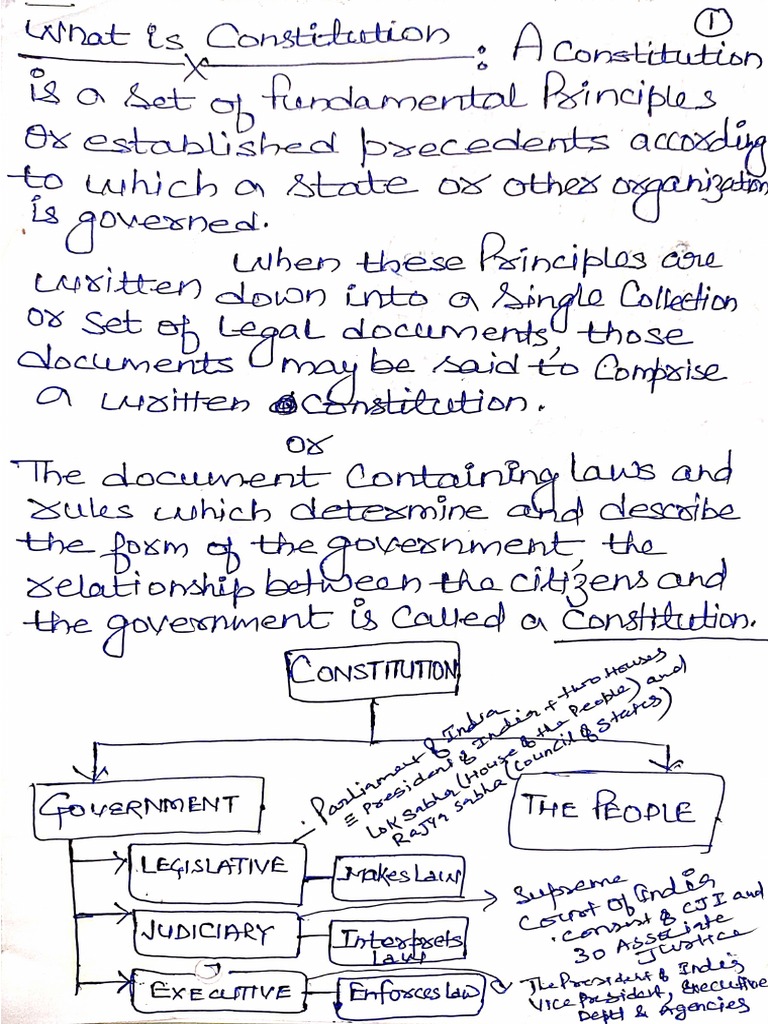 ①
What is Constitution : A Constitution
is a set of fundamental Principles
or established precedents according
to which a state or other organization
is governed.
When these Principles are
written down into a single Collection
or set of Legal documents, those
documents may be said to Comprise
a written Constitution.
or
The document Containing laws and
rules which determine and describe
the form of the government, the
relationship between the citizens and
the government is called a Constitution.
CONSTITUTION
GOVERNMENT
Parliament of India
= President of India + two Houses
Lok Sabha (House of the People) and
Rajya Sabha (Council of States)
THE PEOPLE
LEGISLATIVE
Makes Law
JUDICIARY
Interprets
Law
Supreme
Court of India
. Consist of CJI and
30 Associate
Justice
EXECUTIVE
Enforces Law
The President of India
Vice President, Executive
Dept & Agencies